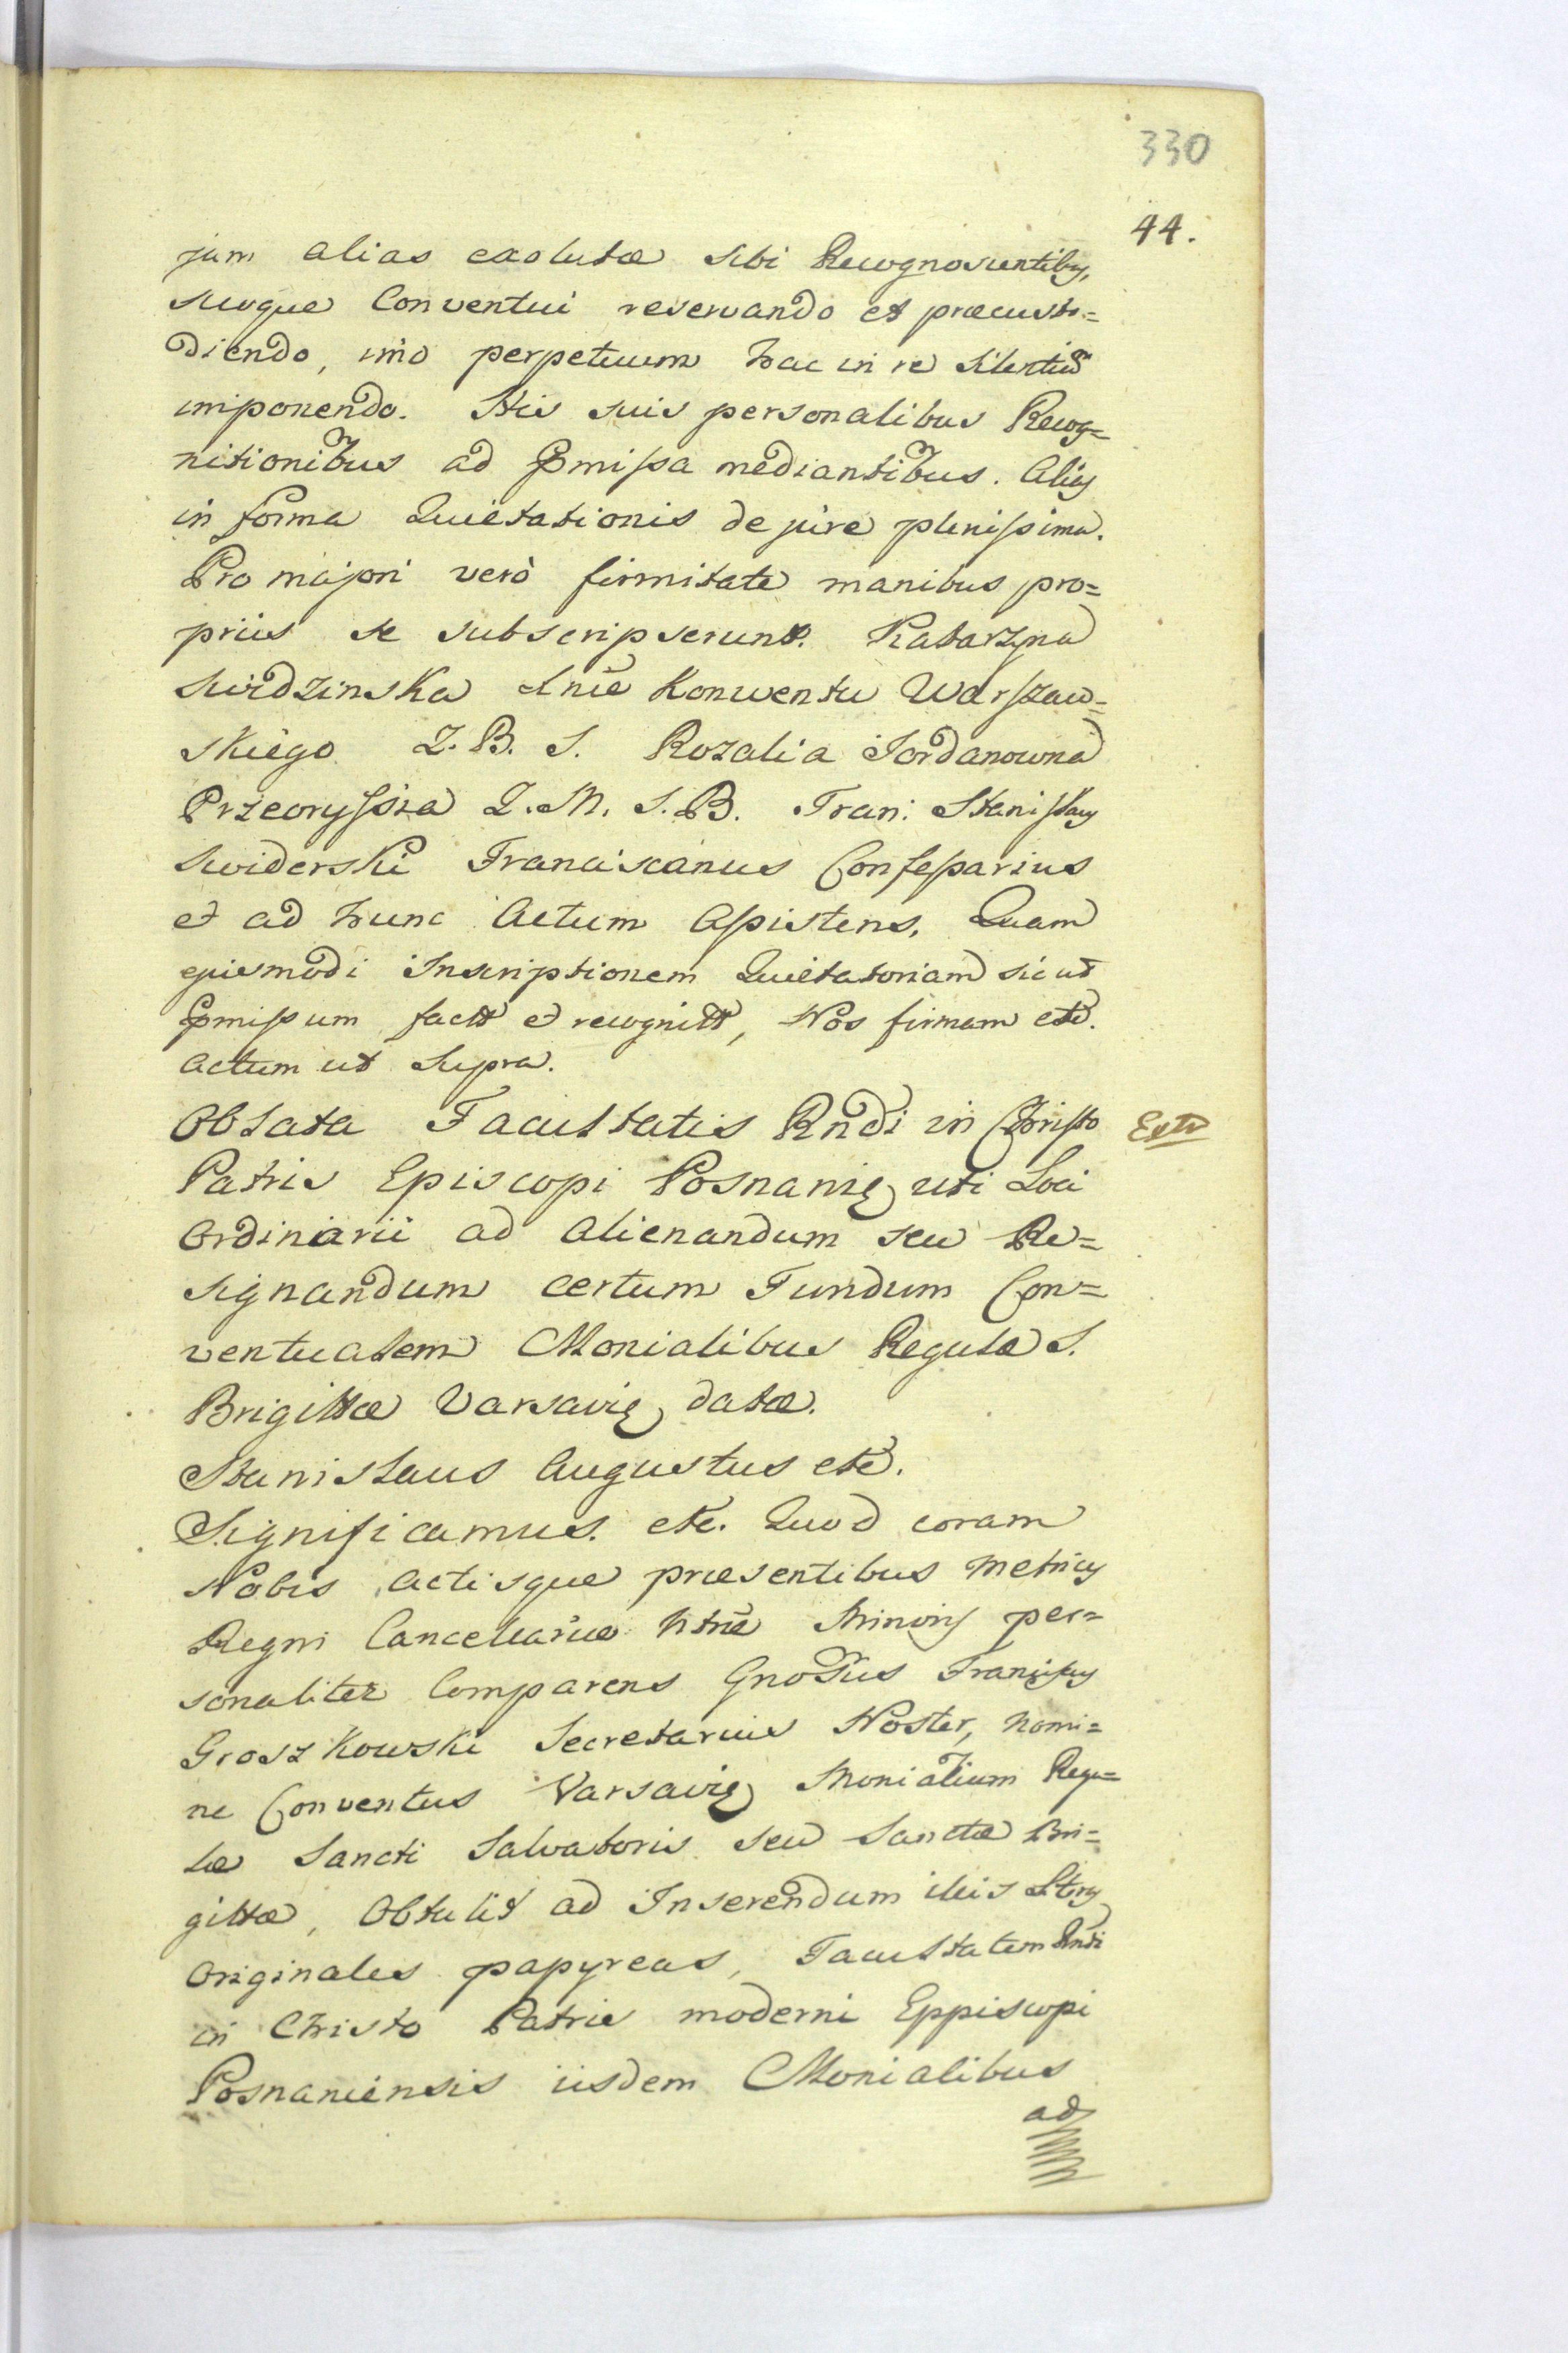 330
44.
jam alias exolutæ sibi Recognoscentibg,
suoque Conventui reservando et præcusto=
diendo, imo perpetuum hac in re silentiũ
imponendo. His suis personalibus Recog=
nitionibus ad pmissa mediantibus. Alias
in forma Quietationis de jure plenissima.
Pro majori verò firmitate manibus pro=
priis se subscripserunt. Katarzyna
Swidzinska Konwentu Warszaw=
skiego Z. B. S. Rozalia Jordanowna
Przeoryssza Z. M. S. B. Fran: Stanislaus
Swiderski Franciscanus Confessarius
et ad hunc Actum Assistens. Quam
ejusmodi Inscriptionem Quietatoriam sic ut
pmissum fact et recognitt, Nos firmam etc.
Actum ut supra.
Oblata Facultatis Rndi in Christo
Extr
Patris Episcopi Posnanię uti Loci
Ordinarii ad alienandum seu Re=
signandum certum Fundum Con=
ventualem Monialibus Regulæ S.
Brigittæ Varsavię datæ.
Stanislaus Augustus etc.
Significamus. etc. Quod coram
Nobis Actisque præsentibus Metricę
Regni Cancellariæ Ntræ Minoris per=
sonaliter Comparens Gnosus Franciscus
Groszkowski Secretarius Noster, nomi=
ne Conventus Varsavię Monialium Regu=
læ Sancti Salvatoris seu Sanctæ Bri=
gittæ, Obtulit ad Inserendum illis Ltras
Originales papyreas, Facultatem Rndi
in Christo Patris moderni Eppiscopi
Posnaniensis iisdem Monialibus
ad